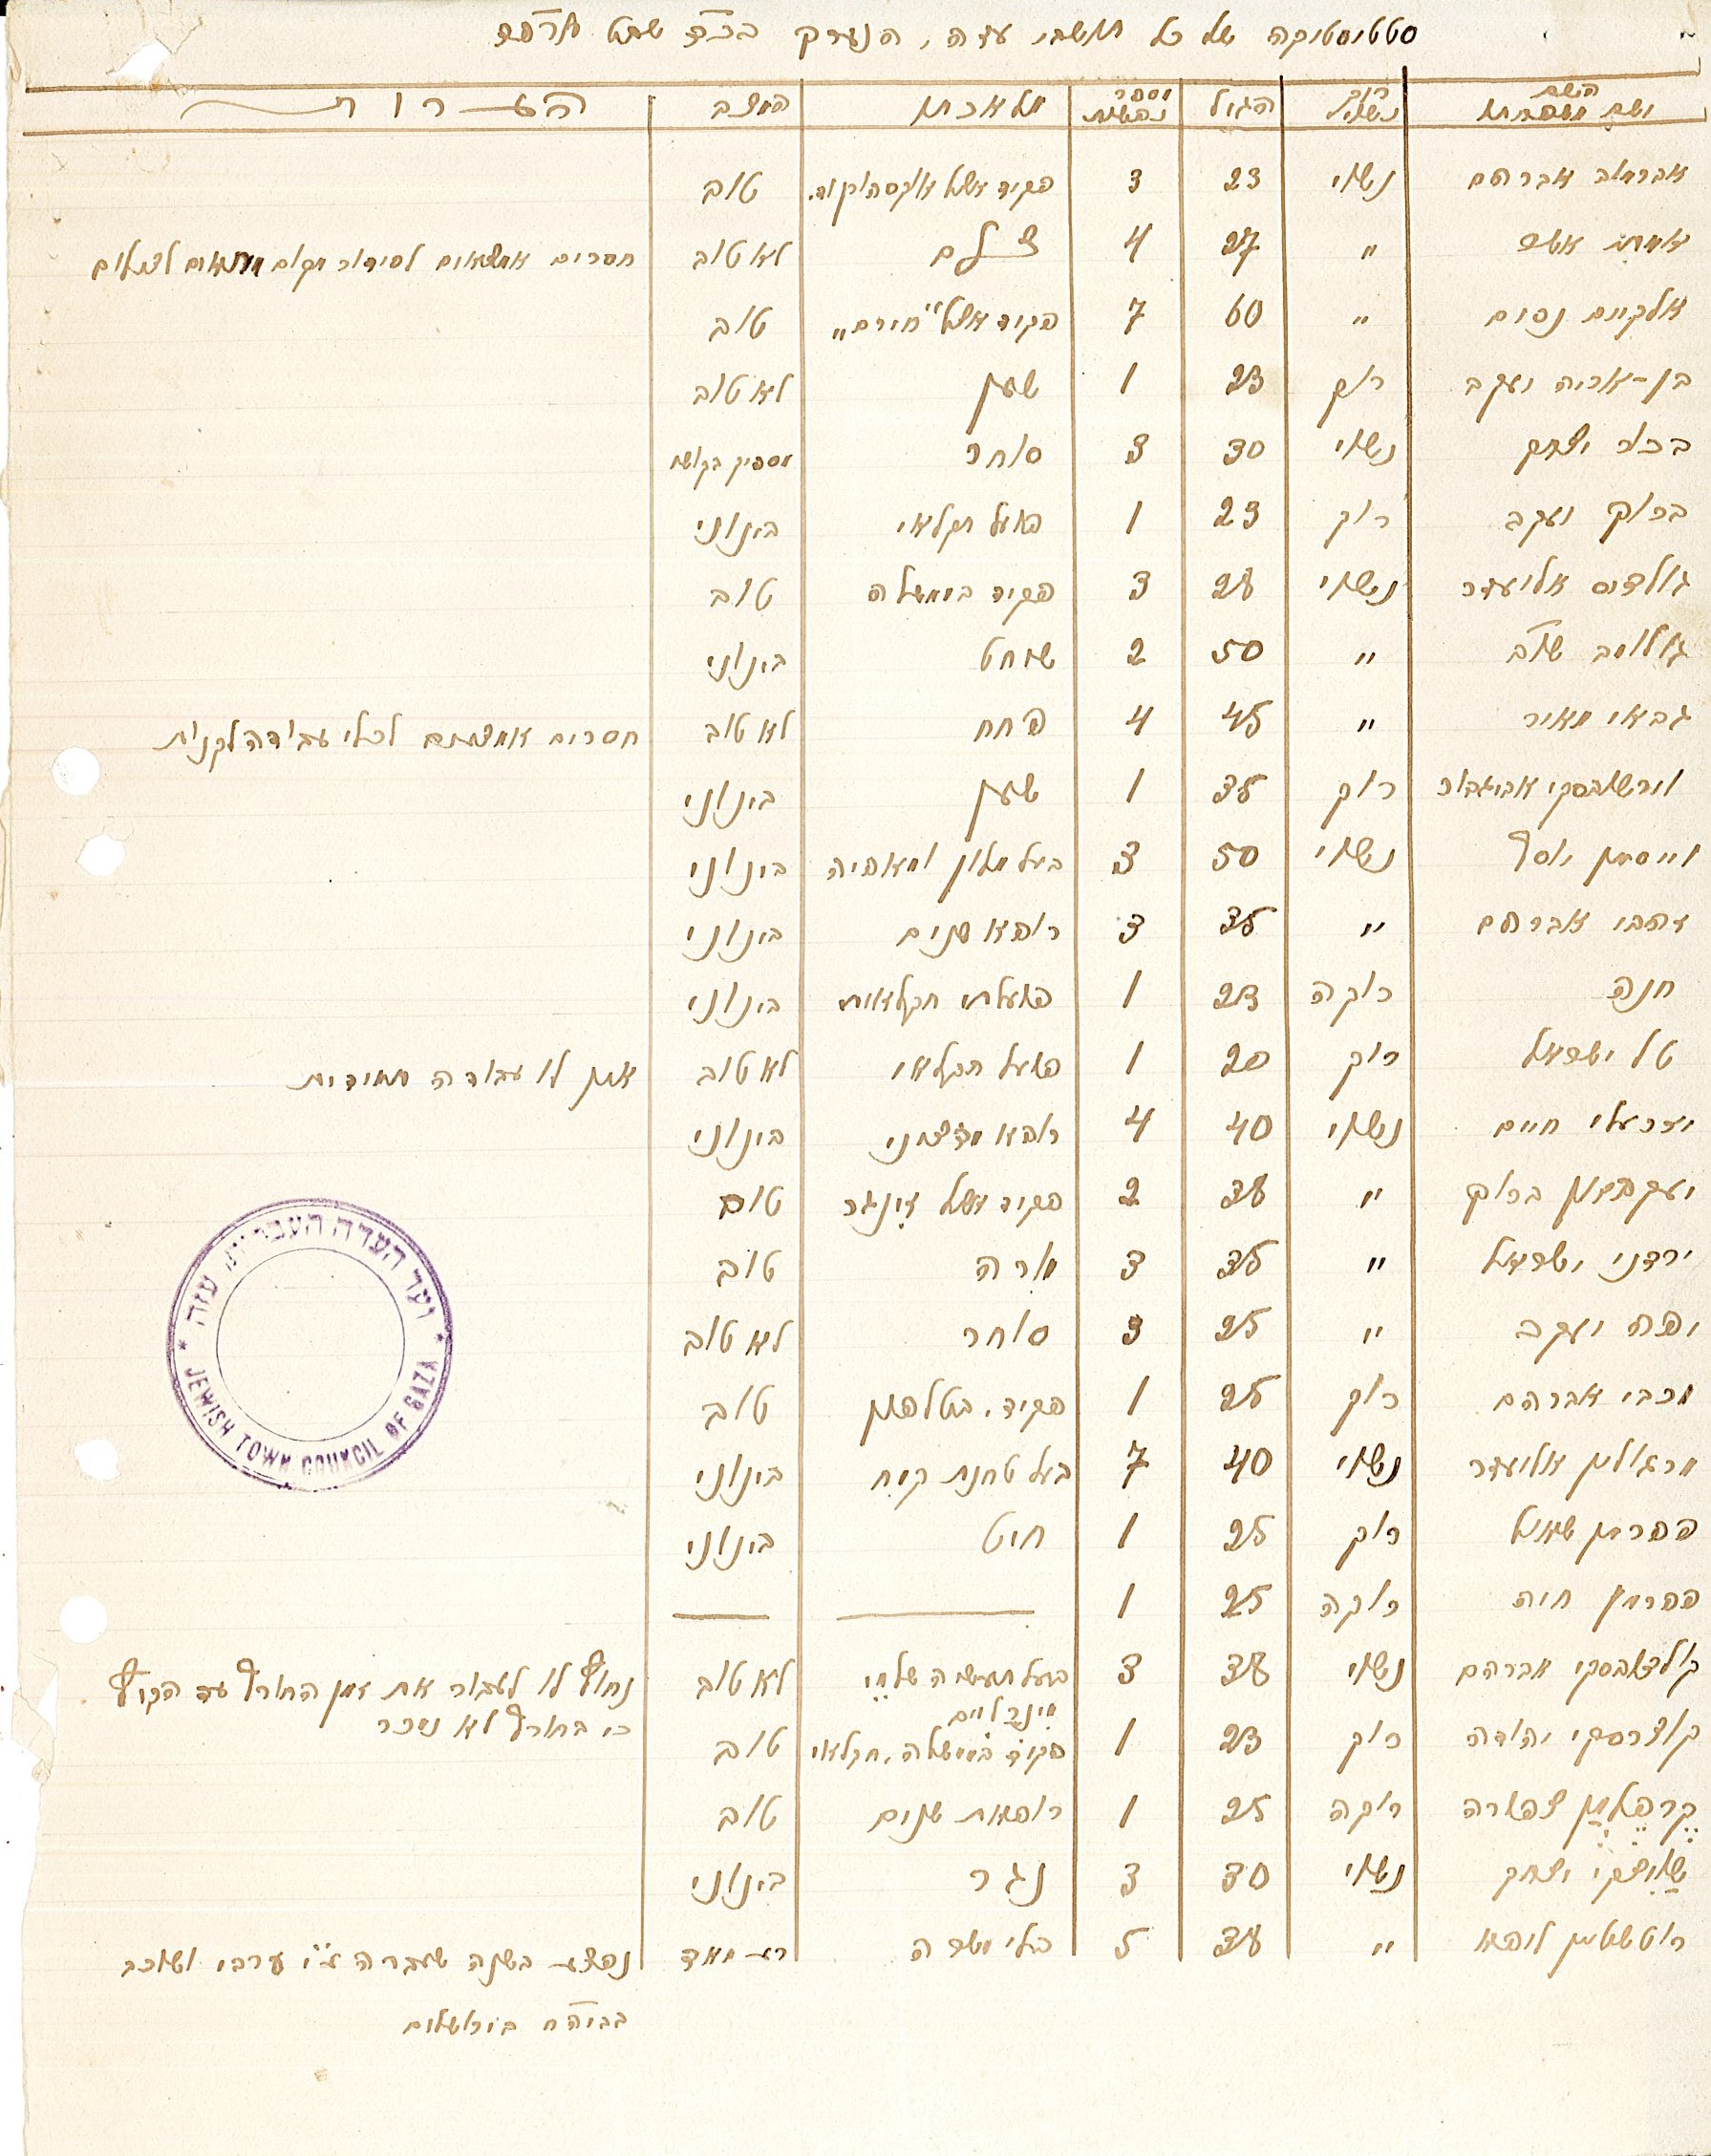 סטטיסטיקה של כל תושבי עזה, הנערך בכ״ה שבט תרפ״ה
השם ושם משפחתו | רוק נשוי | הגיל | מספר נפשות | מלאכתו | המצב | הערות
אברהם | נשוי | 23 | 3 | פקיד אצל | טוב
" | 27 | 4 | צלם | לא טוב | חסרים אמצעים לסידור מקום מתאים לצלום
אלקיים נסים | " | 60 | 7 | פקיד אצל "חירם" | טוב
בן-אריה יעקב | רוק | 23 | 1 | שען | לא טוב
בכר יצחק | נשוי | 30 | 3 | סוחר | מספיק בקושי
ברוק יעקב | רוק | 23 | 1 | פועל חקלאי | בינוני
אליעזר | נשוי | 28 | 3 | פקיד בממשלה | טוב
" | 50 | 2 | שוחט | בינוני
גבאי מאיר | " | 45 | 4 | פחח | לא טוב | חסרים אמצעים לכלי עבודה לקנות
ורשבסקי | רוק | 35 | 1 | שען | בינוני
וייסמן יוסף | נשוי | 50 | 3 | בעל מלון ומאפיה | בינוני
זהבי אברהם | " | 35 | 3 | רופא שנים | בינוני
חנה | רוקה | 23 | 1 | פועלת חקלאית | בינוני
טל ישראל | רוק | 20 | 1 | פועל חקלאי | לא טוב | אין לו עבודה תמידית
יזרעלי חיים | נשוי | 40 | 4 | רופא | בינוני
ברוך | " | 38 | 2 | פקיד אצל זינגר | טוב
ירדני ישראל | " | 35 | 3 | מורה | טוב
יפה יעקב | " | 25 | 3 | סוחר | לא טוב
מכבי אברהם | רוק | 25 | 1 | פקיד, בטלפון | טוב
מרגולין אליעזר | נשוי | 40 | 7 | בעל טחנת קמח | בינוני
פהרמן שמואל | רוק | 25 | 1 | חיט | בינוני
פהרמן חיה | רוקה | 25 | 1
אברהם | נשוי | 38 | 3 | בעל תעשיה של מי מינרליים | לא טוב | נחוץ לו לעבור את זמן החורף עד הקיץ
כי בחורף לא נמכר
יהודה | רוק | 23 | 1 | פקיד בממשלה, חקלאי | טוב
צפורה | רוקה | 25 | 1 | רופאת שנים | טוב
יצחק | נשוי | 30 | 3 | נגר | בינוני
ליפא | " | 38 | 5 | בלי משרה | רע מאד | נפצע בשנה שעברה ע"י ערבי ושוכב
בביה״ח בירושלים
ועד העדה העברית עזה
JEWISH TOWN COUNCIL OF GAZA